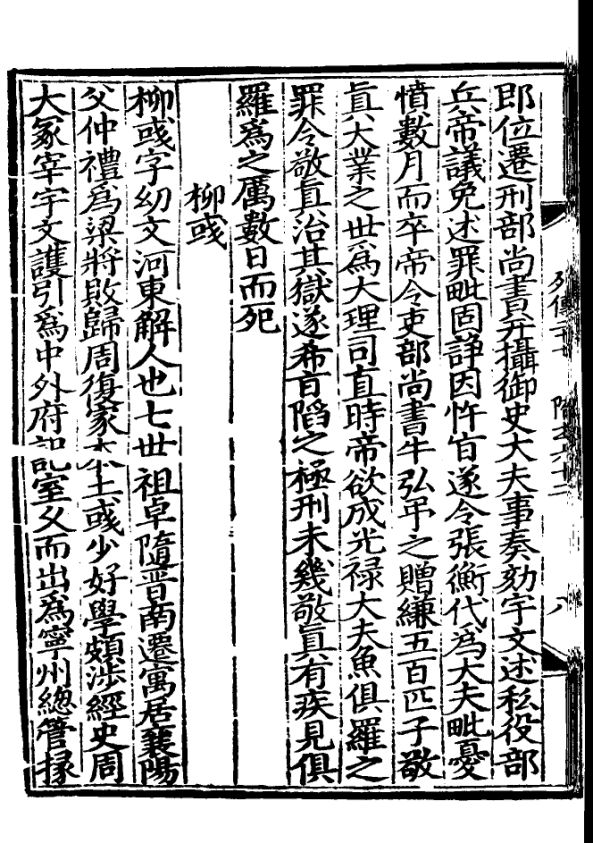 即位遷刑部尚書并攝御史大夫事奏劾宇文述私役部
兵帝議免述罪毗固諍因忤旨遂令張衡代爲大夫毗憂
憤數月而卒帝令吏部尚書牛弘弔之贈縑五百匹子敬
眞大業之世爲大理司直時帝欲成光禄大夫魚俱羅之
罪令敬眞治其獄遂希旨䧟之極刑未幾敬眞有疾見俱
羅爲之厲數日而死
柳彧
柳彧字幼文河東解人也七世祖卓隨晋南遷寓居襄陽
父仲禮爲梁將敗歸周復家本土彧少好學頗涉經史周
大冢宰宇文護引爲中外府記室乆而出爲寧州總管掾
列傳二十七 隋書六十二 八